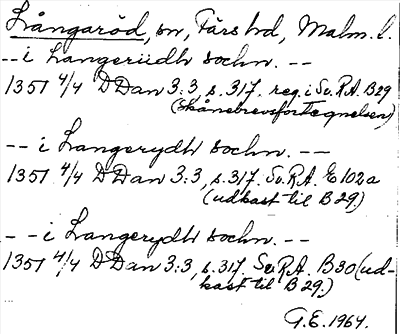 Långaröd, sn, Färs hd, Malm. l.
-- i Langeriidh sochn. --
1351 4/4 DDan 3:3, s. 317. reg. i Sv. R.A. B29
(Skånebrevsförteqnelsen)
-- i Langerydh sochn. --
1351 4/4 DDan 3:3, s. 317. Sv. R.A. E102a
(udkast til B29.)
-- i Langerydh sochn. --
1351 4/4 DDan 3:3, s. 317. Sv. R.A. B30 (ud-
kast til B29.)
G.E. 1964.